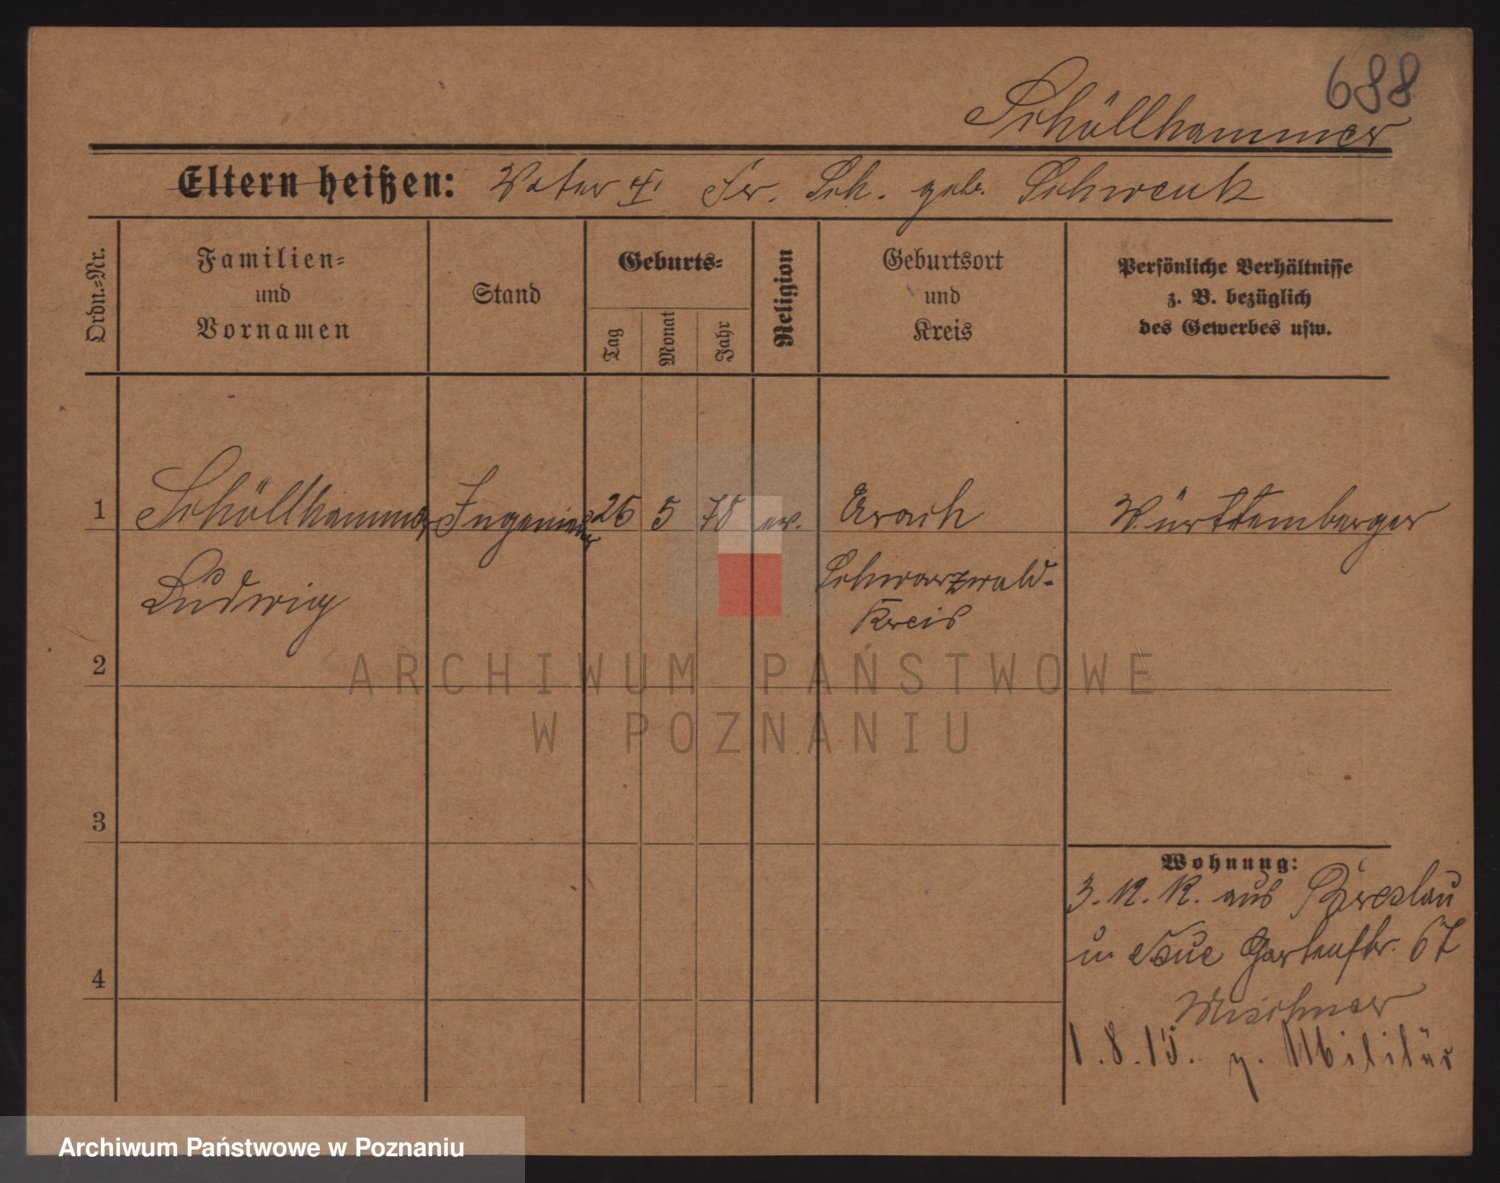 688
Schöllhammer
Eltern heißen: Vater †. Fr. Sch. geb. Schwenk
Ordn.-Nr.
Familien-
und
Vornamen
Stand
Geburts-
Tag
Monat
Jahr
Religion
Geburtsort
und
Kreis
Persönliche Verhältnisse
z. B. bezüglich
des Gewerbes usw.
1 Schöllhammer Ingenieur 26 5 78 ev. Urach Württemberger
Ludwig Schwarzwald-
Kreis
2
ARCHIWUM PAŃSTWOWE
W POZNANIU
3
Wohnung:
3. 12. 12. aus Breslau
in Neue Gartenstr. 67
4
1.8.15. z. Militär
Archiwum Państwowe w Poznaniu